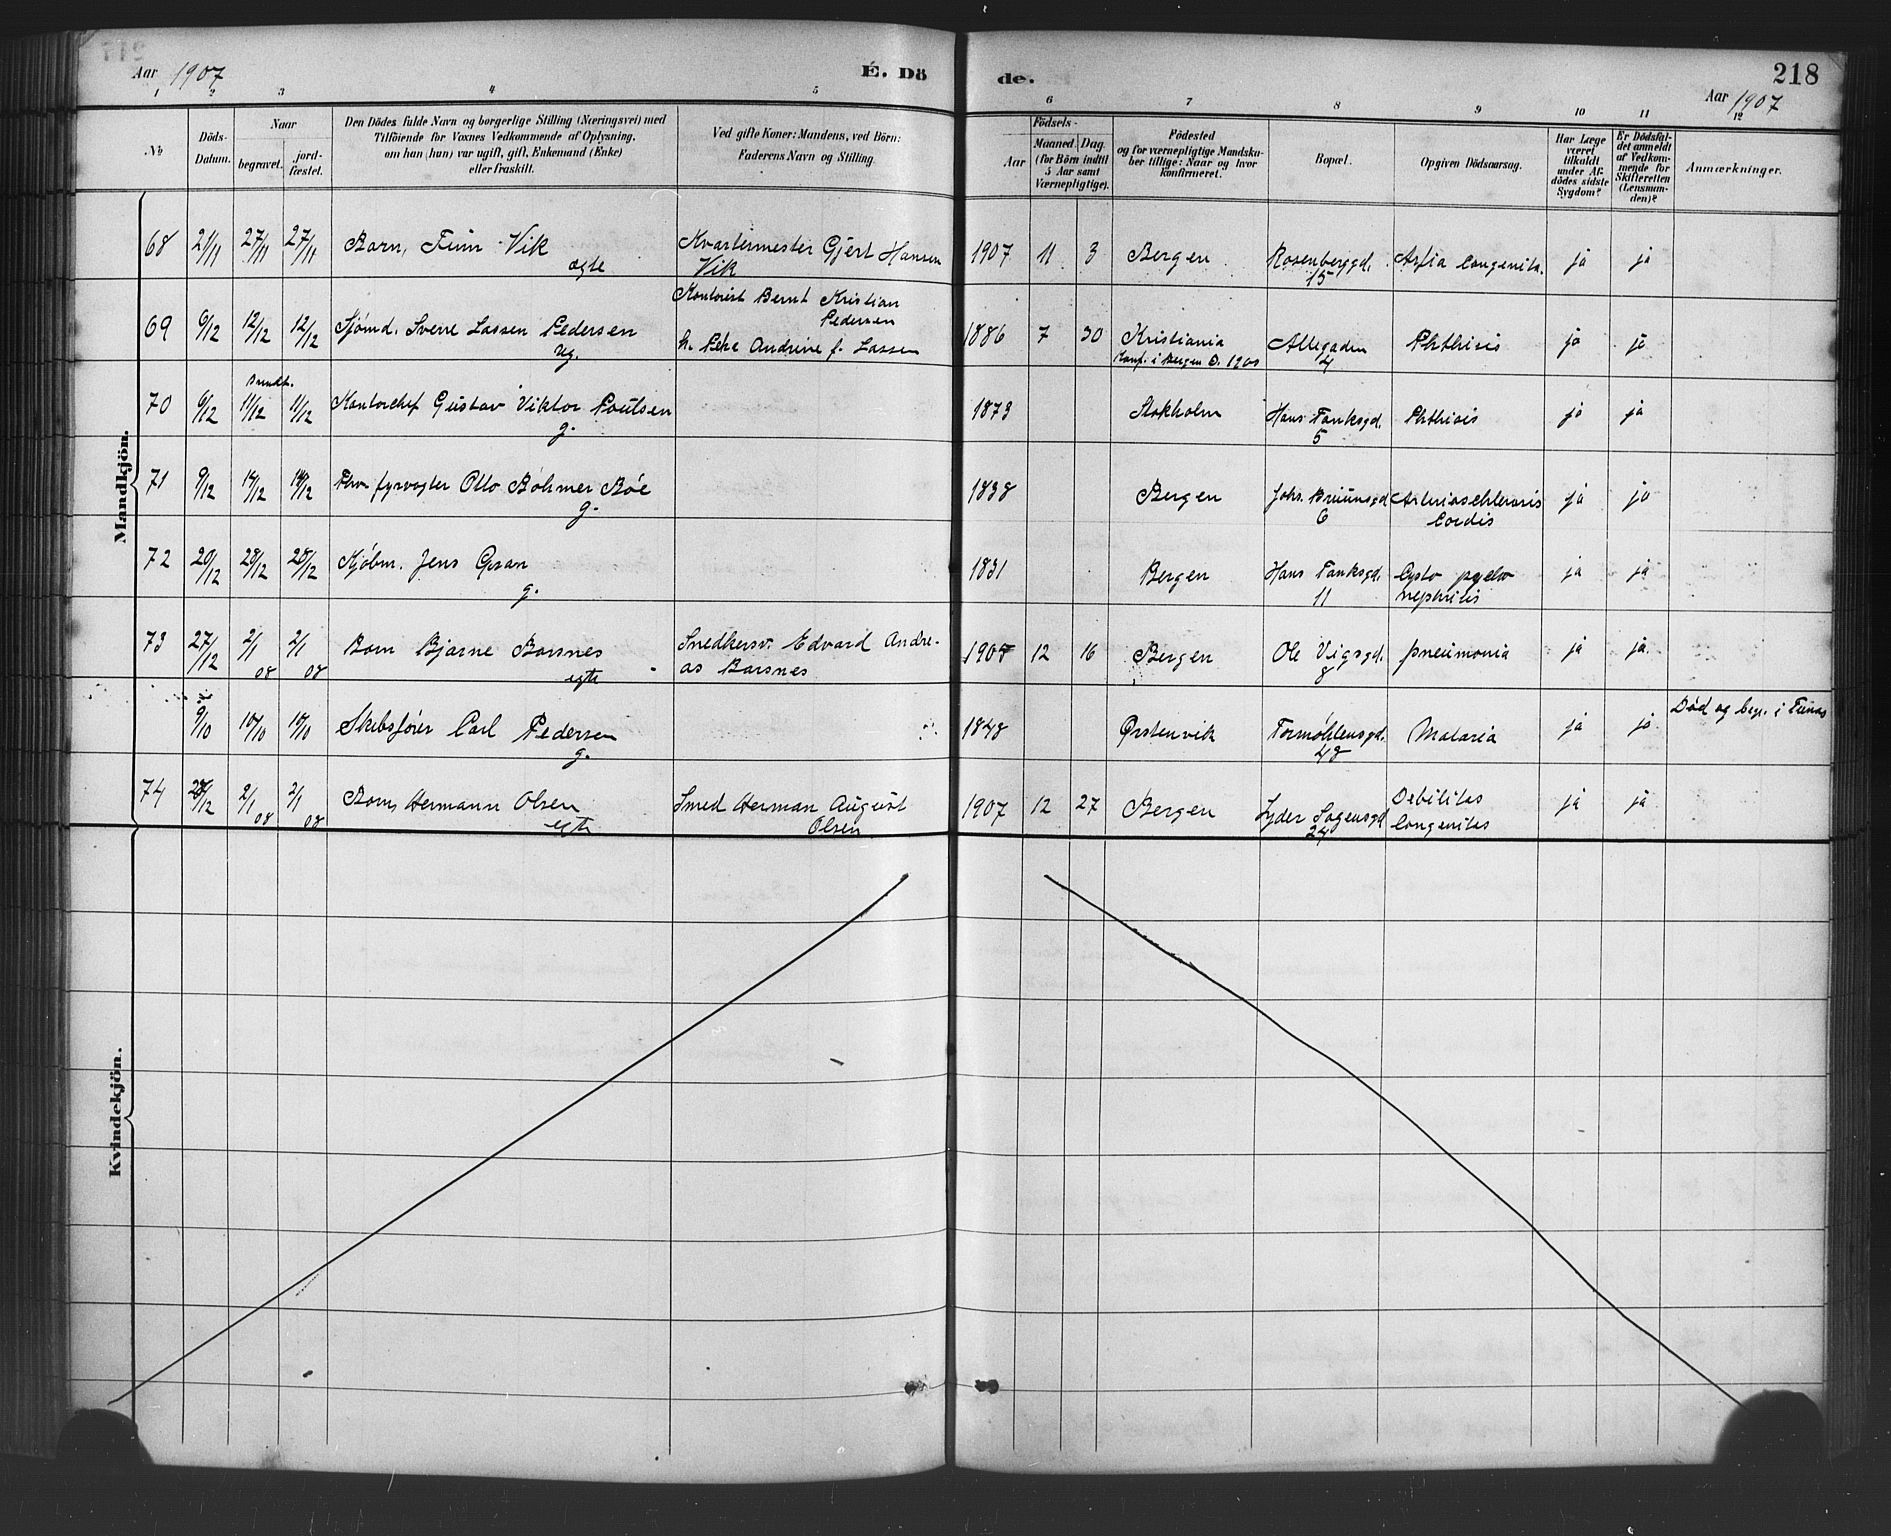 Aar 1907
É. Dö
de.
218
Aar 1907
1 2 3 4 5
6 7 8 9 10 11 12
№
Döds-
Datum.
Naar
begravet.
jord-
fæstet.
Den Dödes fulde Navn og borgerlige Stilling (Næringsvei) med
Tilföiende for Voxnes Vedkommende af Oplysning,
om han (hun) var ugift, gift, Enkemand (Enke)
eller fraskilt.
Ved gifte Koner: Mandens, ved Börn:
Faderens Navn og Stilling.
Födsels-
Aar
Maaned.
Dag.
(for Börn indtil
5 Aar samt
Værnepligtige).
Födested
og for værnepligtige Mandska-
ber tillige: Naar og hvor
konfirmeret.
Bopæl.
Opgiven Dödsaarsag.
Har Læge
været
tilkaldt
under Af-
dödes sidste
Sygdom?
Er Dödsfal-
det anmeldt
af Vedkom-
mende for
Skifteretten
(Lensman-
den)?
Anmærkninger.
Mandkjön.
68 21/11 27/11 27/11 Barn, Finn Vik Kvartermester Gjert Hansen 1907 11 3 Bergen Rosenberggd. Asfia Congenita. ja ja
ægte Vik 15
Kontorist Bernt Kristian
Pedersen
69 6/12 12/12 12/12 Sjömd. Sverre Lassen Pedersen 1886 7 30 Kristiania Allegaden Phthisis ja ja
ug. h. Andrine f. Lassen Konf. i Bergen D. 1900 4
70 6/12 11/12 11/12 Kontorchef Gustav Viktor Poulsen 1873 Stokholm Hans Tanksgd. Phthisis ja ja
g. 5
71 9/12 14/12 14/12 fyrvogter Otto Böhmer Böe 1838 Bergen Johs. Bruunsgd Arteriosclerosis ja ja
g. 6 Cordis
72 20/12 28/12 28/12 Kjöbm. Jens Gran 1831 Bergen Hans Tanksgd. Cysto pyelo ja ja
g. 11 nephritis
73 27/12 2/1 08 2/1 08 Barn Bjarne Barsnes Snedkersv. Edvard Andre- 1907 12 16 Bergen Ole Vigsgd. pneumonia ja ja
egte as Barsnes 8
9/10 10/10 10/10 Skibsförer Carl Pedersen 1848 Ørstenvik Formöhlensgd. Malaria ja ja Död og begr. i
g. 48
74 28/12 2/1 08 2/1 08 Barn, Hermann Olsen Smed Herman August 1907 12 27 Bergen Lyder Sagensgd Debilitas ja ja
egte Olsen 24 Congenitas
Kvindekjön.